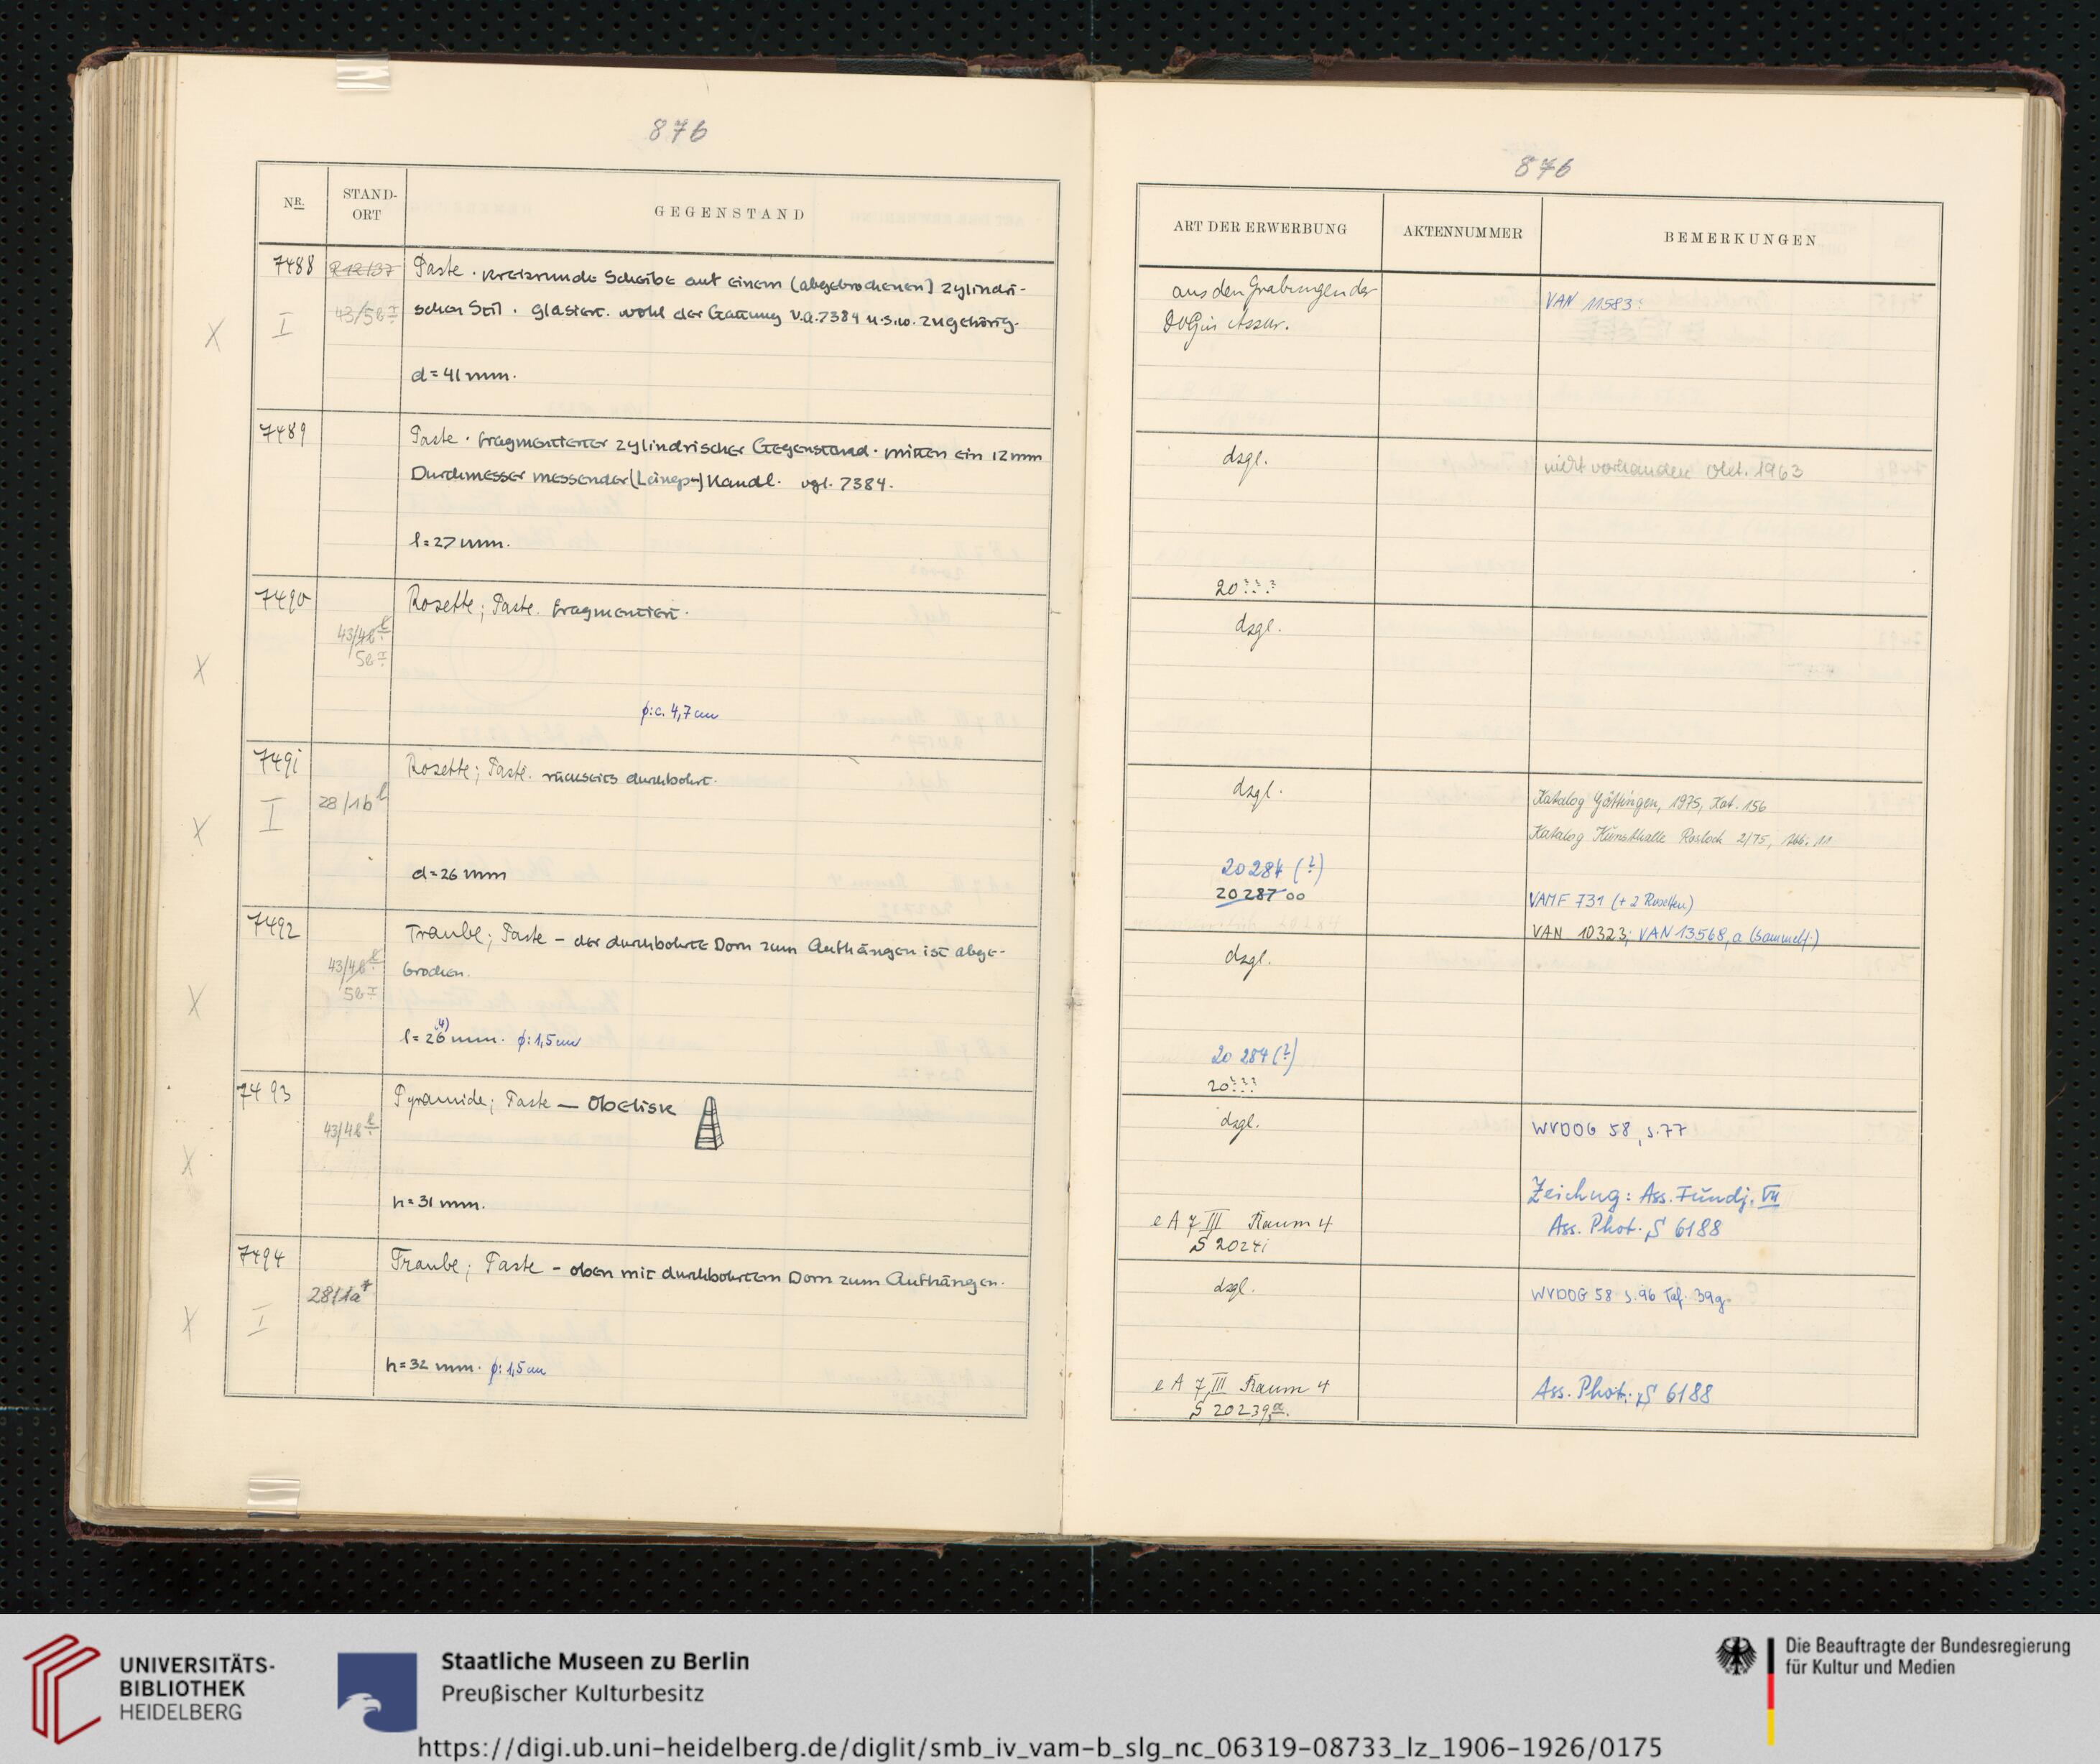 876
NR.
STAND-
ORT
GEGENSTAND
7488
Paste. kreisrunde Scheibe auf einem (abgebrochenen) zylindri-
I
43/5b I
schen Stil. glasiert. wohl der Gattung V.A. 7384 u.s.w. zugehörig.
X
d=41 mm.
7489
Paste. fragmentierter zylindrischer Gegenstand. mitten ein 12mm
Durchmesser messender (Längs-) Kanal. vgl. 7384.
l=27 mm.
7490
Rosette; Paste. fragmentiert.
43/4b
5b I
X
ϕ: c. 4,7 cm
7491
Rosette; Paste. rückseits durchbohrt.
I
28/1b
X
d=26 mm
7492
Traube; Paste – der durchbohrte Dorn zum Aufhängen ist abge-
43/4b
brochen.
5b I
X
l=26 mm. ϕ: 1,5 cm
(4)
7493
Pyramide; Paste — Obelisk
43/4b
X
h=31 mm.
7494
Traube; Paste – oben mit durchbohrtem Dorn zum Aufhängen.
28/1a
I
X
h=32 mm. ϕ: 1,5 cm
876
ART DER ERWERBUNG
AKTENNUMMER
BEMERKUNGEN
aus den Grabungen der
DOG in Assur.
VAN 11583:
dsgl.
nicht vorhanden Okt. 1963
20???
dsgl.
dsgl.
Katalog Göttingen, 1975, Kat. 156
Katalog Kunsthalle Rostock 2/75, Abb. 11
20284 (?)
20287 00
VAMF 731 (+ 2 Rosetten)
VAN 10323; VAN 13568, a (Sammelf.)
dsgl.
20 284 (?)
20???
dsgl.
WVDOG 58, S.77
Zeichng: Ass. Fundj. VII
eA 7 III Raum 4
Ass. Phot. S 6188
S 20241
dsgl.
WVDOG 58 S.96 Taf. 39g.
eA 7 III Raum 4
Ass. Phot.: S 6188
S 20239 a.
UNIVERSITÄTS-
BIBLIOTHEK
HEIDELBERG
Staatliche Museen zu Berlin
Preußischer Kulturbesitz
Die Beauftragte der Bundesregierung
für Kultur und Medien
https://digi.ub.uni-heidelberg.de/diglit/smb_iv_vam-b_slg_nc_06319-08733_lz_1906-1926/0175